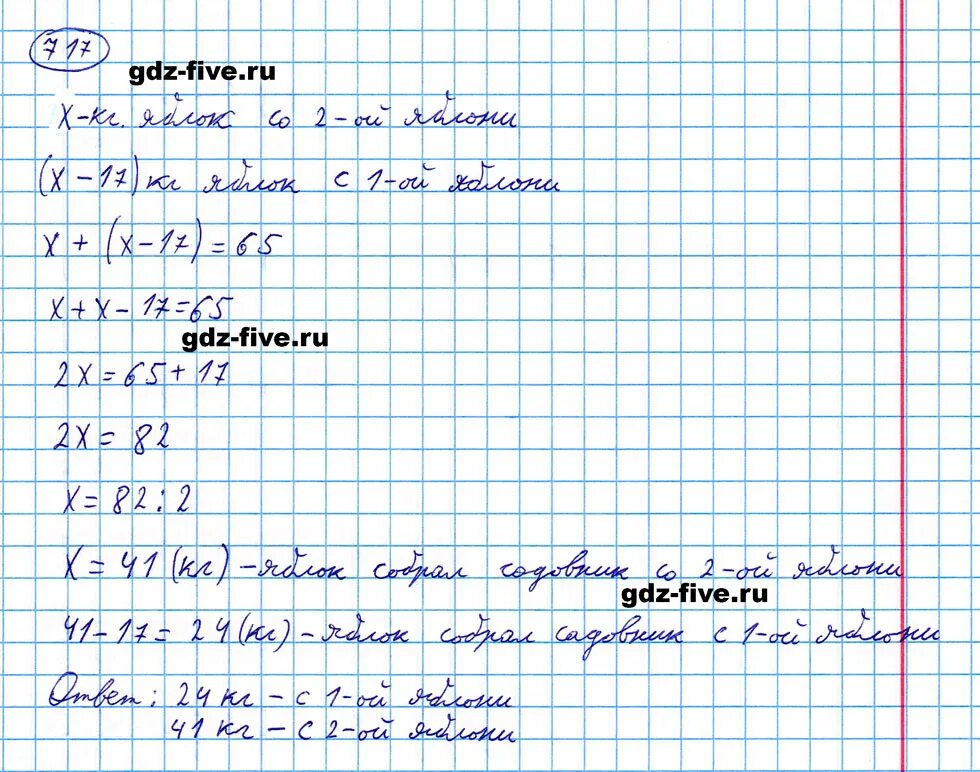 717
gdz-five.ru
x-кг. яблок со 2-ой яблони
(x-17) кг яблок с 1-ой яблони
x + (x-17) = 65
x + x - 17 = 65
gdz-five.ru
2x = 65 + 17
2x = 82
x = 82 : 2
x = 41 (кг) - яблок собрал садовник со 2-ой яблони
gdz-five.ru
41-17 = 24 (кг) - яблок собрал садовник с 1-ой яблони
Ответ: 24 кг - с 1-ой яблони
41 кг - с 2-ой яблони